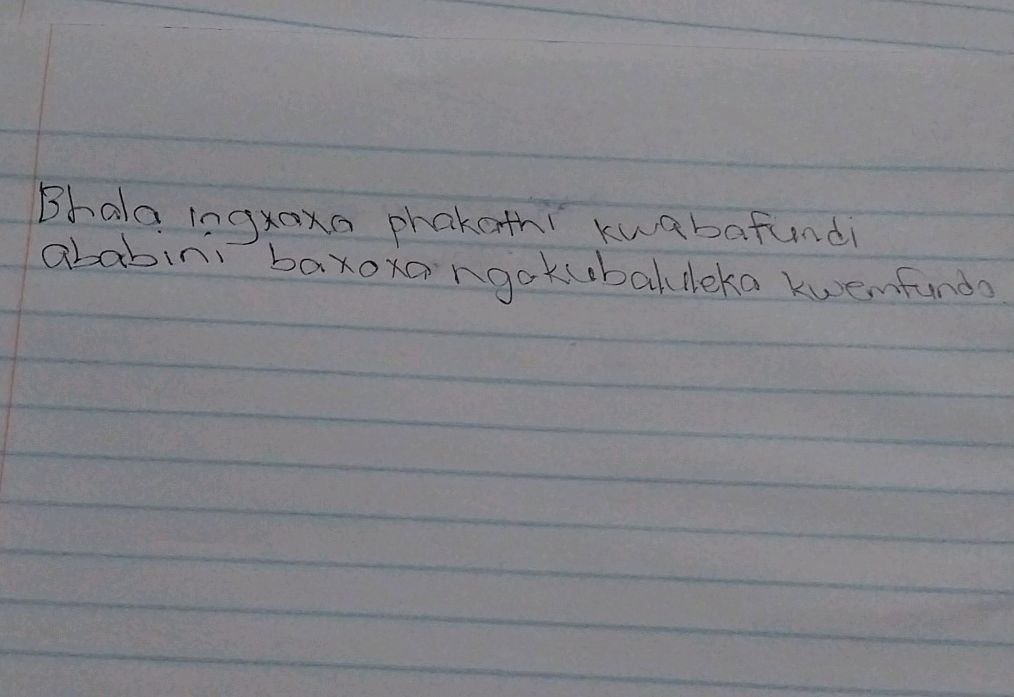 Bhala ingxoxa phakathi kwabafundi
ababini baxoxa ngokubaluleka kwemfundo.